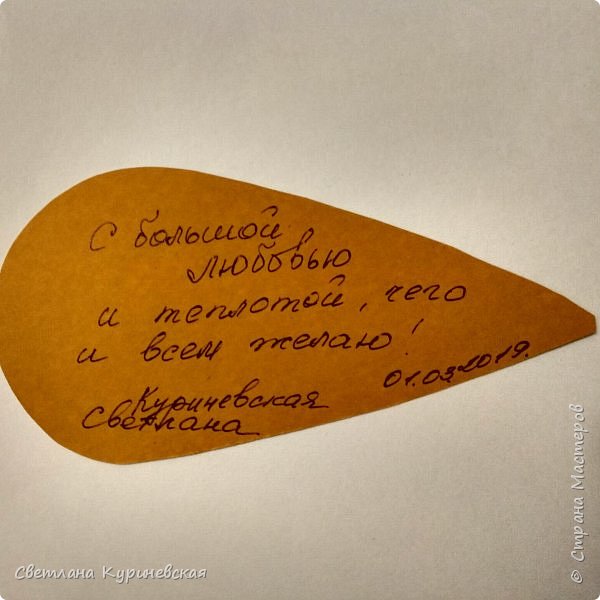 С большой
любовью
и теплотой, чего
и всем желаю!
01.03.2019.
Куриневская
Светлана
Светлана Куриневская
© Страна Мастеров